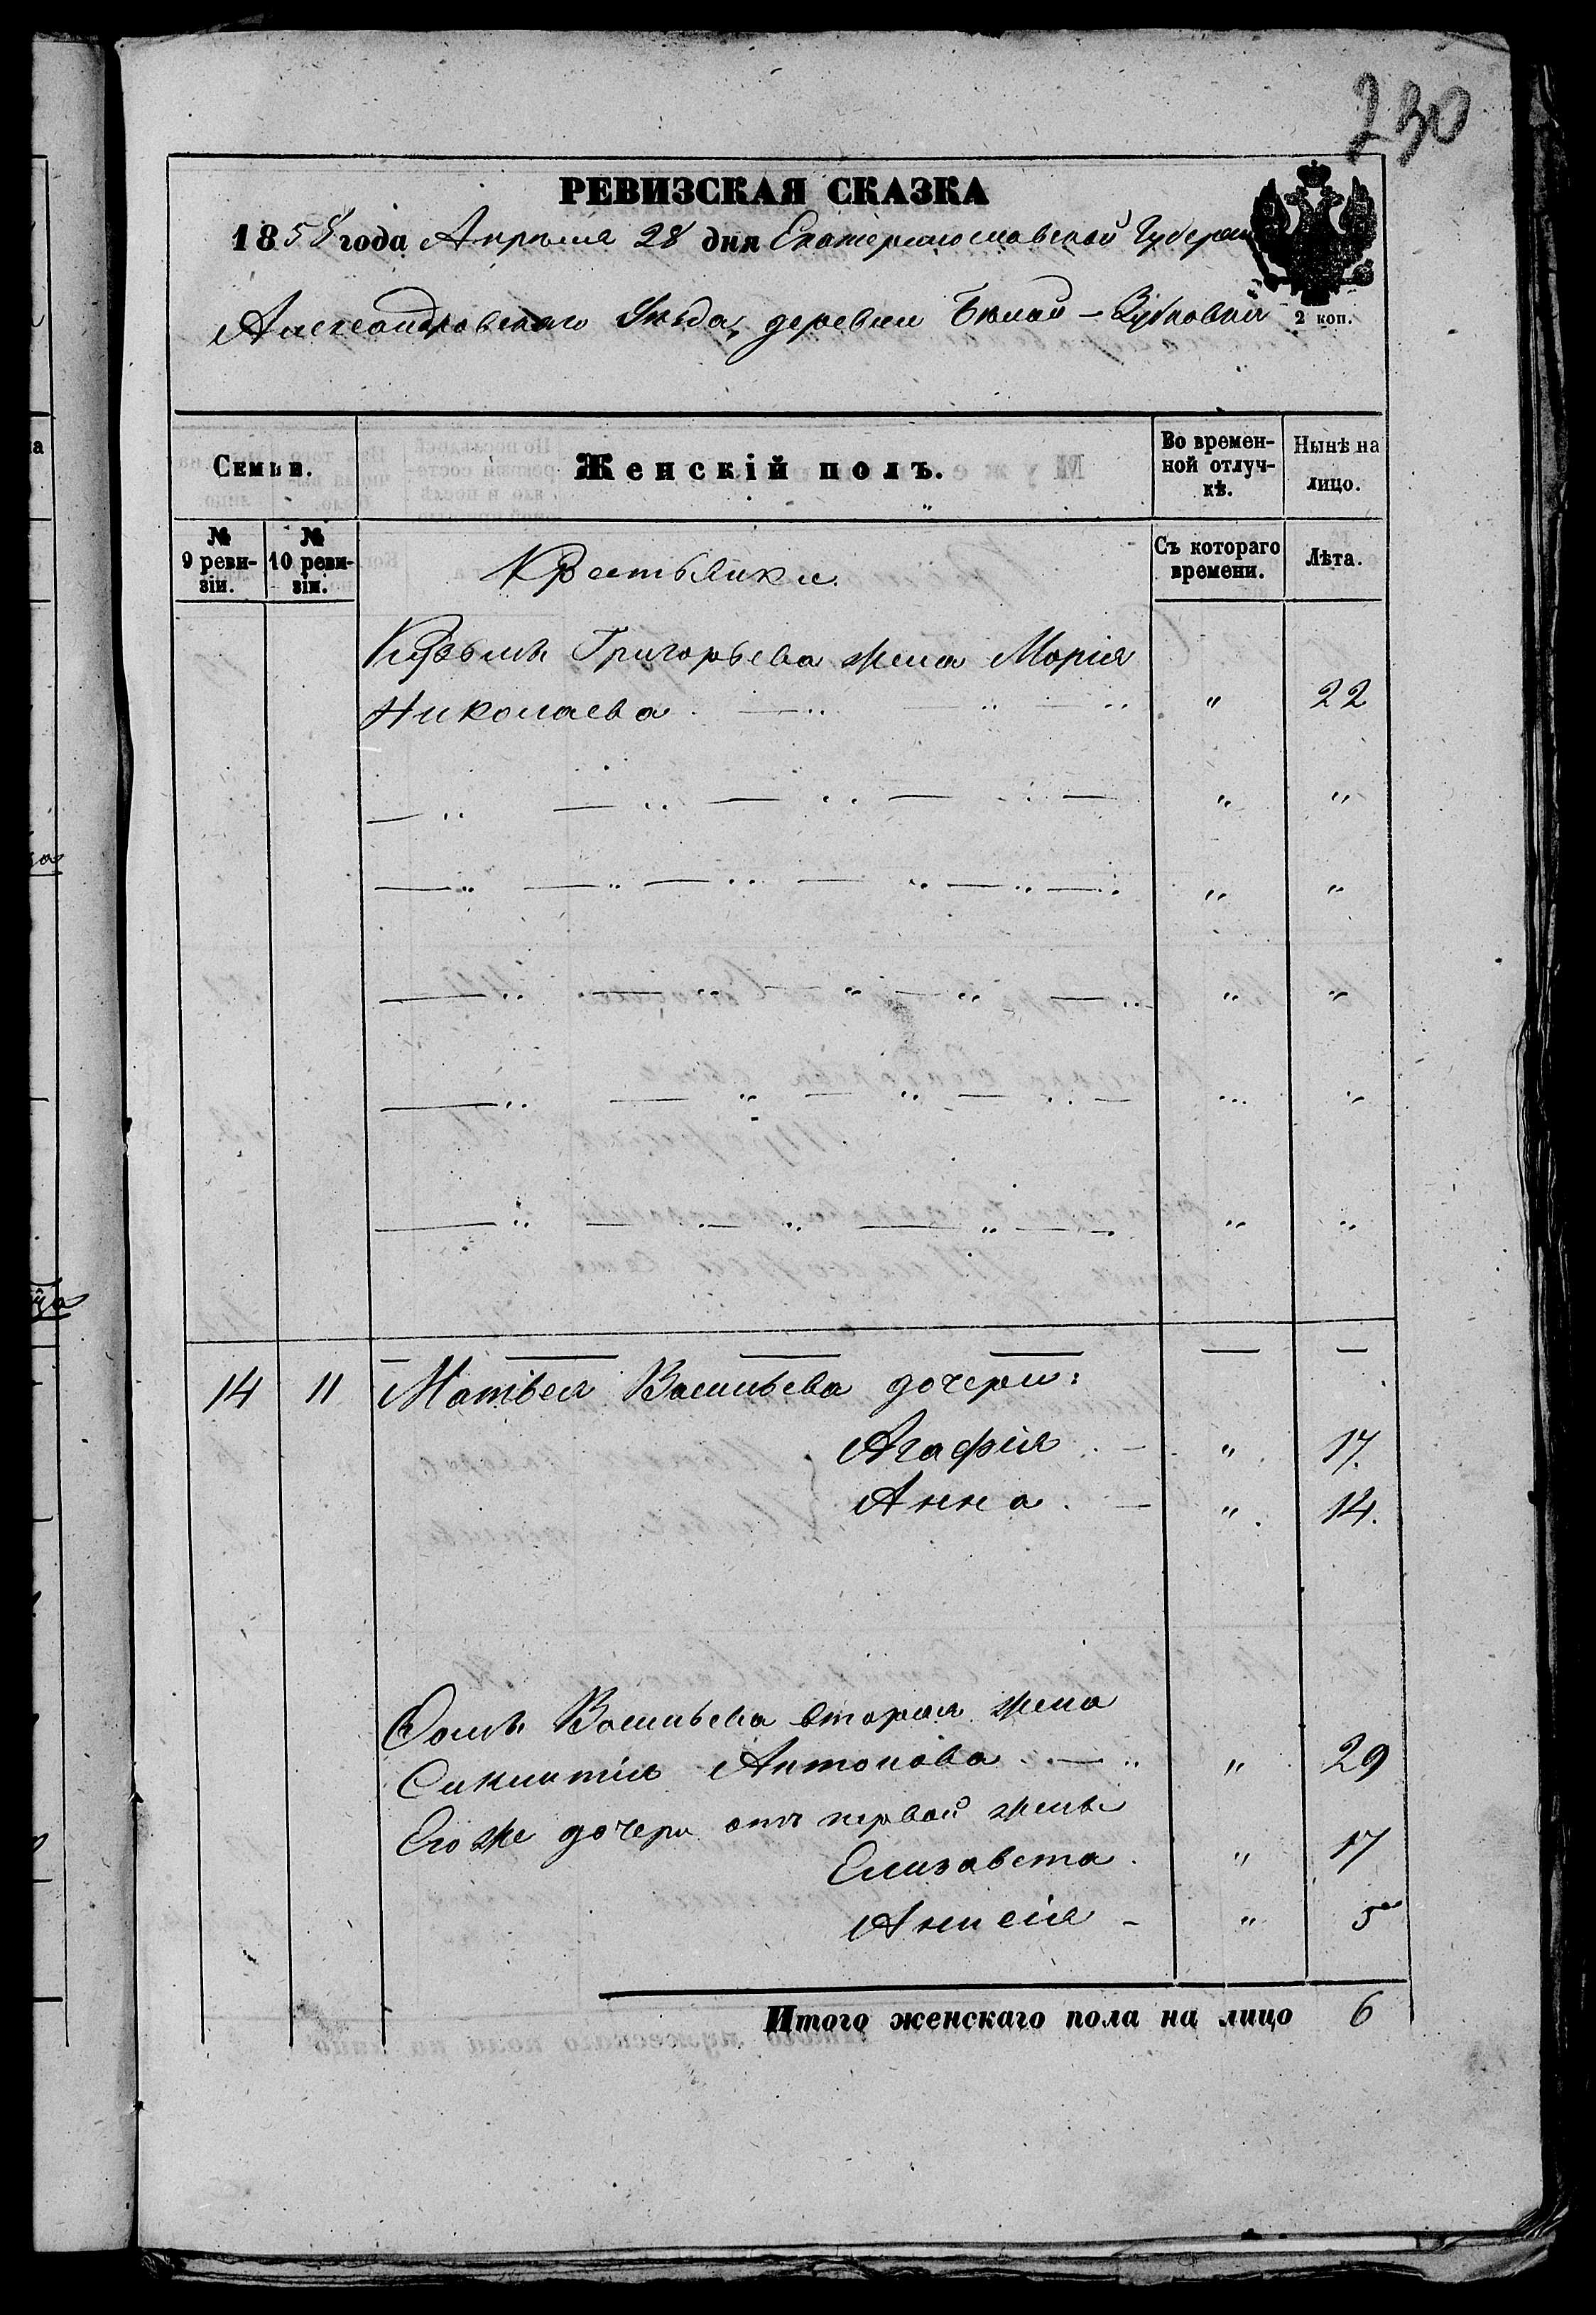 230
РЕВИЗСКАЯ СКАЗКА
1858 года Апреля 28 дня Екатеринославской Губернiи
Александровскаго Уѣзда, деревни Бѣлай-Зубповки
2 коп.
Семьи.
Женскiй полъ.
Во времен-
ной отлуч-
кѣ.
Нынѣ на
лицо.
№
9 реви-
зiи.
№
10 реви-
зiи.
Крестьянки
Съ котораго
времени.
Лѣта.
Кузьмы Григорьева жена Марiя
Николаева " 22
" "
" "
" "
" "
" "
14 11 Матвея Васильева дочери:
Агафiя " 17.
Анна " 14.
Фомы Васильева вторая жена
Антонова " 29
Его же дочери отъ первой жены
Елизавета " 17
Анисiя " 5
Итого женскаго пола на лицо 6